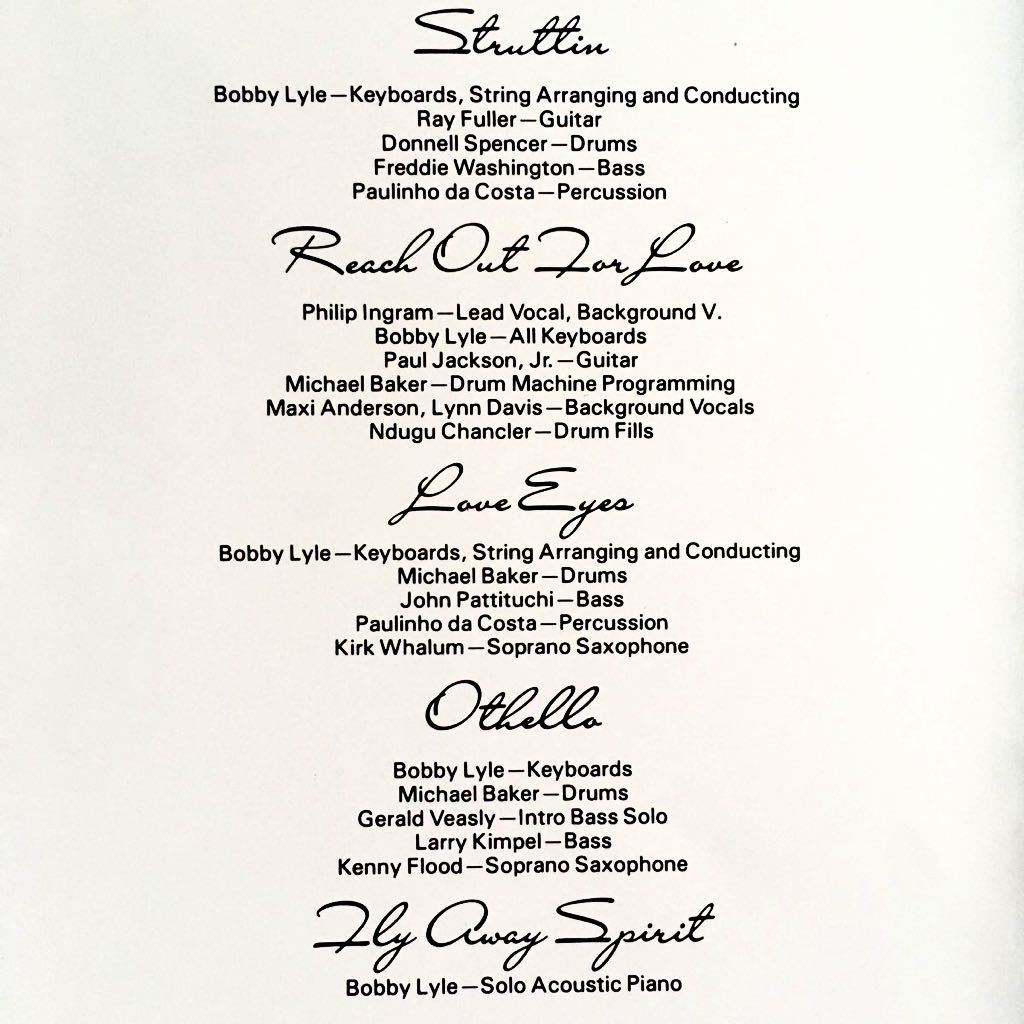 Struttin
Bobby Lyle—Keyboards, String Arranging and Conducting
Ray Fuller—Guitar
Donnell Spencer—Drums
Freddie Washington—Bass
Paulinho da Costa—Percussion
Reach Out For Love
Philip Ingram—Lead Vocal, Background V.
Bobby Lyle—All Keyboards
Paul Jackson, Jr.—Guitar
Michael Baker—Drum Machine Programming
Maxi Anderson, Lynn Davis—Background Vocals
Ndugu Chancler—Drum Fills
Love Eyes
Bobby Lyle—Keyboards, String Arranging and Conducting
Michael Baker—Drums
John Pattituchi—Bass
Paulinho da Costa—Percussion
Kirk Whalum—Soprano Saxophone
Othello
Bobby Lyle—Keyboards
Michael Baker—Drums
Gerald Veasly—Intro Bass Solo
Larry Kimpel—Bass
Kenny Flood—Soprano Saxophone
Fly Away Spirit
Bobby Lyle—Solo Acoustic Piano